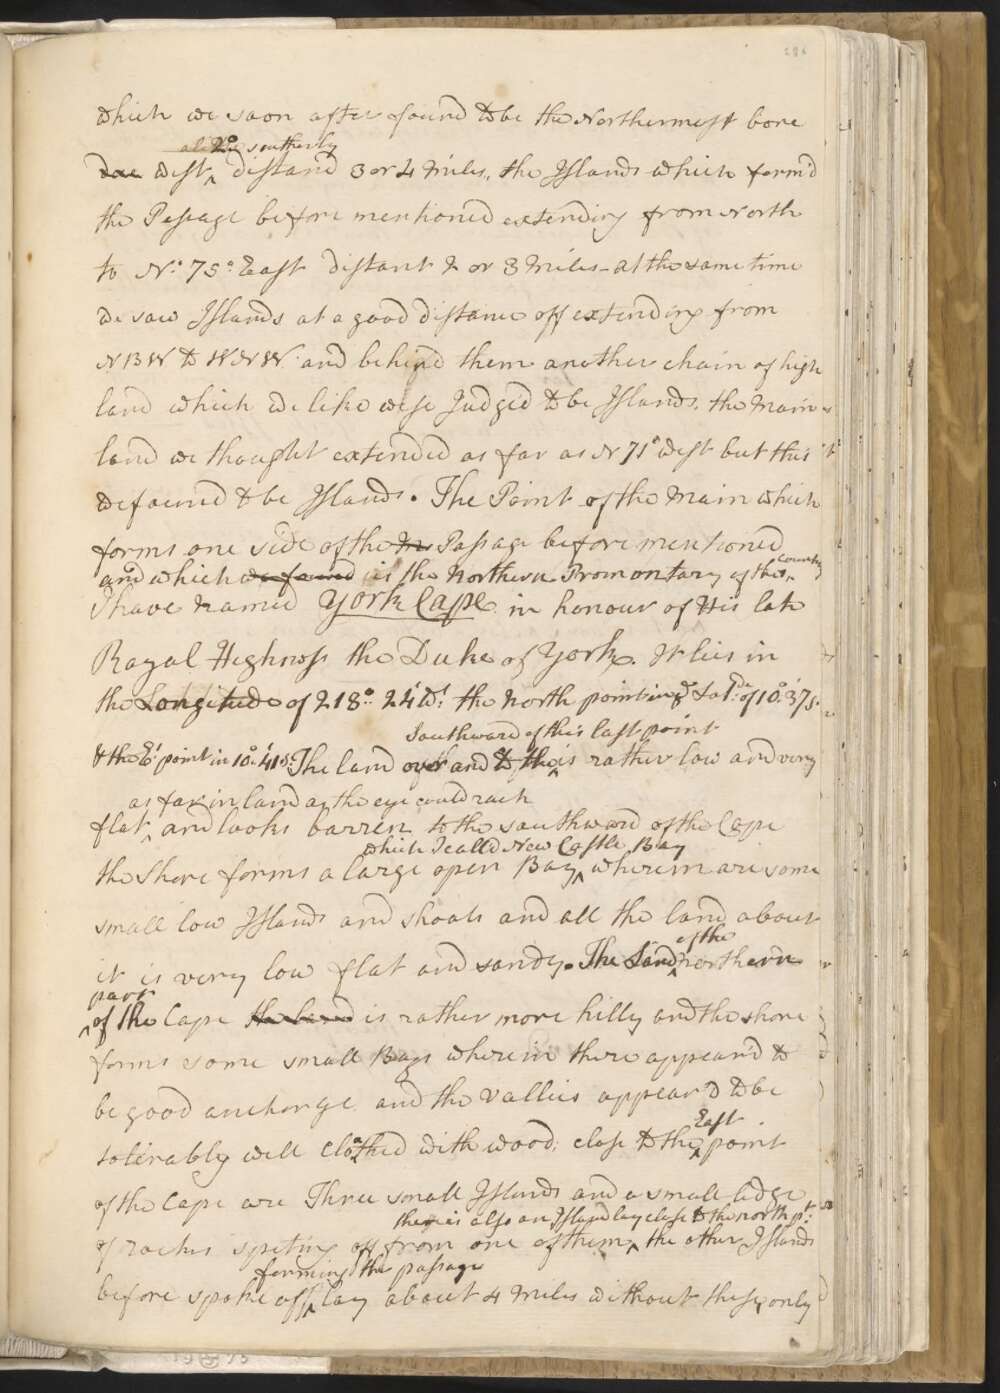 which we soon after found to be the Northermost bore
2° southerly
West distand 3 or 4 Miles, the Islands which form'd
the Passage before mentioned extending from North
to N.° 75° East distant 2 or 3 Miles - at the same time
we saw Islands at a good distance off extending from
NBW to WNW. and behind them another chain of high
land which we like wise Judged to be Islands, the Main
land we thought extended as far as N 71° West but this
we found to be Islands. The Point of the Main which
forms one side of the Passage before mentioned
country
and which we found is the Northern Promontary of this
I have named York Cape in honour of His late
Royal Highness the Duke of York. It lies in
the Longitude of 218°. 24' Wt. the North point in ye Latde. of 10°.37' S.
Southward of this last point
& the Et. point in 10°. 41' S. The land over and to the is rather low and very
as far in land as the eye could reach
flat and looks barren to the southward of the Cape
which I calld New Castle Bay
the Shore forms a large open Bay wherein are some
small low Islands and shoals and all the land about
of the
it is very low flat and sandy. The Land northern
part
of the Cape the land is rather more hilly and the shore
forms some small Bays wherein there appear'd to
be good anchorge and the vallies appear'd to be
East
tolerably well cloathed with wood, close to the point
of the Cape are Three small Islands and a small ledge
there is also an Island lay close to the north pt.
of rocks speting off from one of them the other Islands
forming the passage
before spoke off lay about 4 Miles without these, only